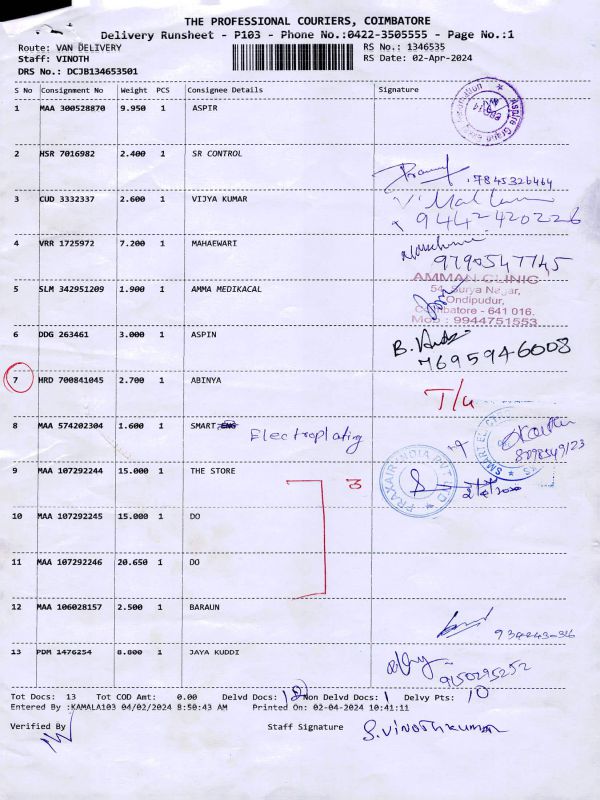 THE PROFESSIONAL COURIERS, COIMBATORE
Delivery Runsheet - P103 - Phone No.:0422-3505555 - Page No.:1
Route: VAN DELIVERY RS No.: 1346535
Staff: VINOTH RS Date: 02-Apr-2024
DRS No.: DCJB134653501
S No Consignment No Weight PCS Consignee Details Signature
1 MAA 300528870 9.950 1 ASPIR
2 HSR 7016982 2.400 1 SR CONTROL 7845326464
3 CUD 3332337 2.600 1 VIJYA KUMAR 9442420226
4 VRR 1725972 7.200 1 MAHAEWARI 9790547745
5 SLM 342951209 1.900 1 AMMA MEDIKACAL
AMMAN CLINIC
54, Surya Nagar,
Ondipudur,
Coimbatore - 641 016.
Mob : 9944751553
6 DDG 263461 3.000 1 ASPIN B.
7695946008
7 HRD 700841045 2.700 1 ABINYA T/4
8 MAA 574202304 1.600 1 SMART ENG Electroplating
9 MAA 107292244 15.000 1 THE STORE 3 PRAXAIR INDIA PVT LTD
10 MAA 107292245 15.000 1 DO
11 MAA 107292246 20.650 1 DO
12 MAA 106028157 2.500 1 BARAUN
13 PDM 1476254 8.800 1 JAYA KUDDI 9150295252
Tot Docs: 13 Tot COD Amt: 0.00 Delvd Docs: 12 Non Delvd Docs: 1 Delvy Pts: 10
Entered By :KAMALA103 04/02/2024 8:50:43 AM Printed On: 02-04-2024 10:41:11
Verified By Staff Signature S.Vinothkumar